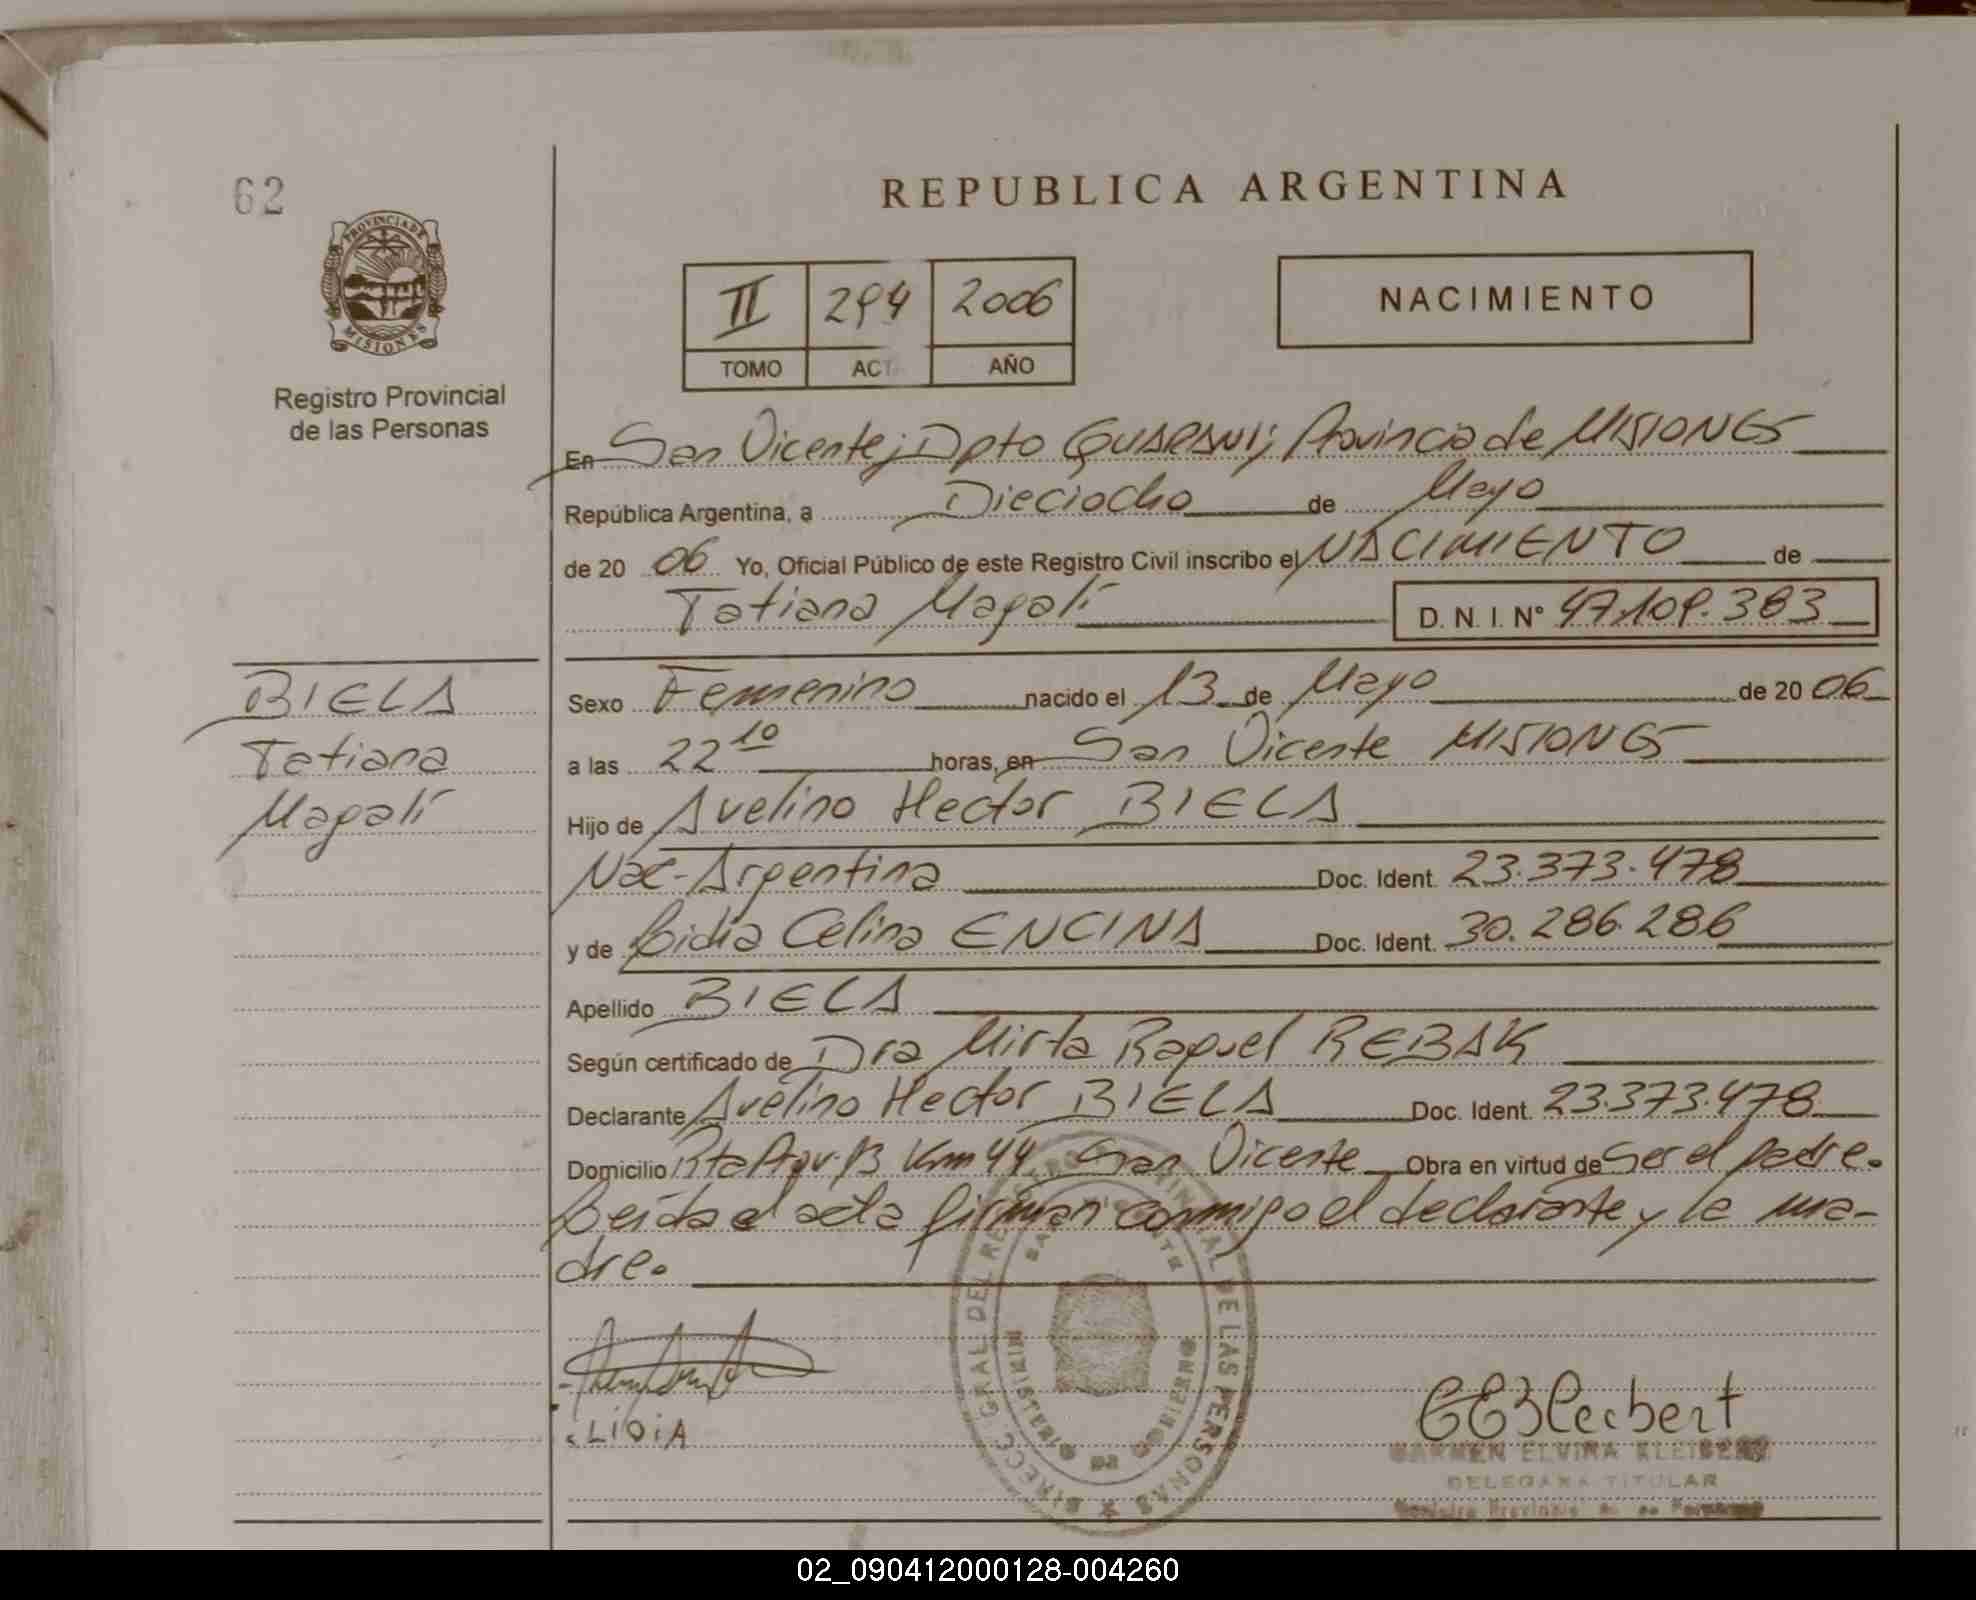 62
PROVINCIA DE
MISIONES
Registro Provincial
de las Personas
REPUBLICA ARGENTINA
II 294 2006
TOMO ACT AÑO
NACIMIENTO
En San Vicente; Dpto GUARANI; Provincia de MISIONES
República Argentina, a Dieciocho de Mayo
de 20 06 Yo, Oficial Público de este Registro Civil inscribo el NACIMIENTO de
Tatiana Magalí D. N. I. N° 47.109.383
BIELA
Tatiana
Magalí
Sexo Femenino nacido el 13 de Mayo de 20 06
a las 22 10 horas, en San Vicente MISIONES
Hijo de Avelino Hector BIELA
Nac-Argentina Doc. Ident. 23.373.478
y de Lidia Celina ENCINA Doc. Ident. 30.286.286
Apellido BIELA
Según certificado de Dra Mirta Raquel REBAK
Declarante Avelino Hector BIELA Doc. Ident. 23.373.478
Domicilio Km 44 San Vicente Obra en virtud de Ser el padre.
Leida el acta firman conmigo el declarante y la ma-
dre.
DIRECC. GRAL. DEL REGISTRO PROVINCIAL DE LAS PERSONAS
SAN VICENTE
MINISTERIO DE GOBIERNO
LIDIA
CARMEN ELVIRA KLEIBERT
DELEGADA TITULAR
02_090412000128-004260